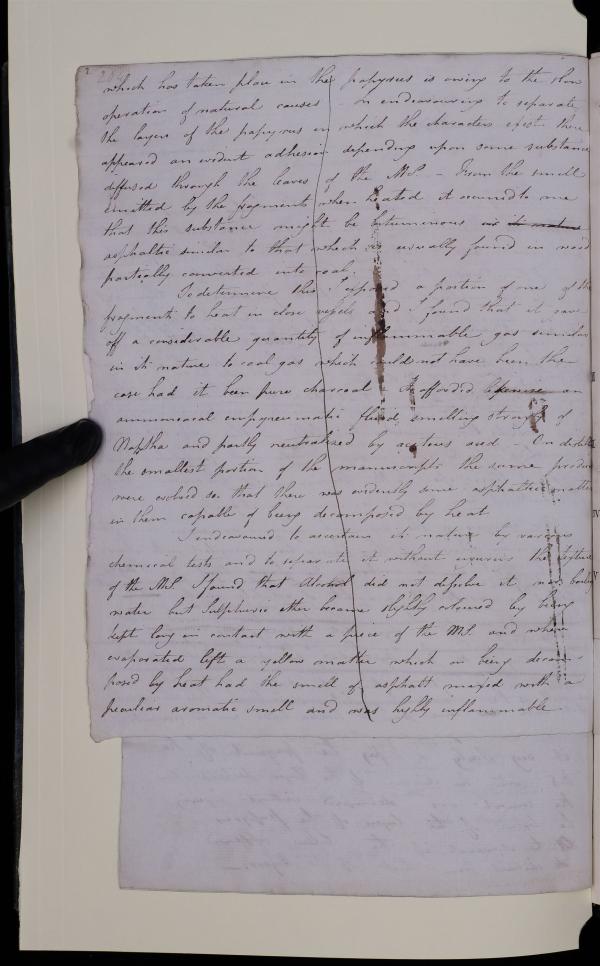 2
which has taken place in the papyruses is owing to the slow
operation of natural causes - on endeavouring to separate
the layers of the papyrous on which the characters exist there
appeared an evident adhesion depending upon some substance
diffused through the leaves of the MS. - From the smell
emitted by the fragments when heated it occurred to me
that this substance might be bituminous or
asphaltic similar to that which is usually found in wood
partially converted into coal.
To determine this I exposed a portion of one of the
fragments to heat in close vessels and I found that it gave
off a considerable quantity of inflammable gas similar
in its nature to coal gas which could not have been the
case had it been pure charcoal. It afforded likewise an
ammoniacal empyreumatic fluid smelling strongly of
Naptha and partly neutralized by acetous acid - On distilling
the smallest portion of the manuscripts the same products
were evolved so that there was evidently some asphaltic matter
in them capable of being decomposed by heat
I endeavoured to ascertain its nature by various
chemical tests and to separate it without injuring the texture
of the MS. I found that Alcohol did not dissolve it nor boiling
water but Sulphuric ether became slightly coloured by being
kept long in contact with a piece of the MS. and when
evaporated left a yellow matter which on being decom-
posed by heat had the smell of asphalt mixed with a
peculiar aromatic smell and was highly inflammable